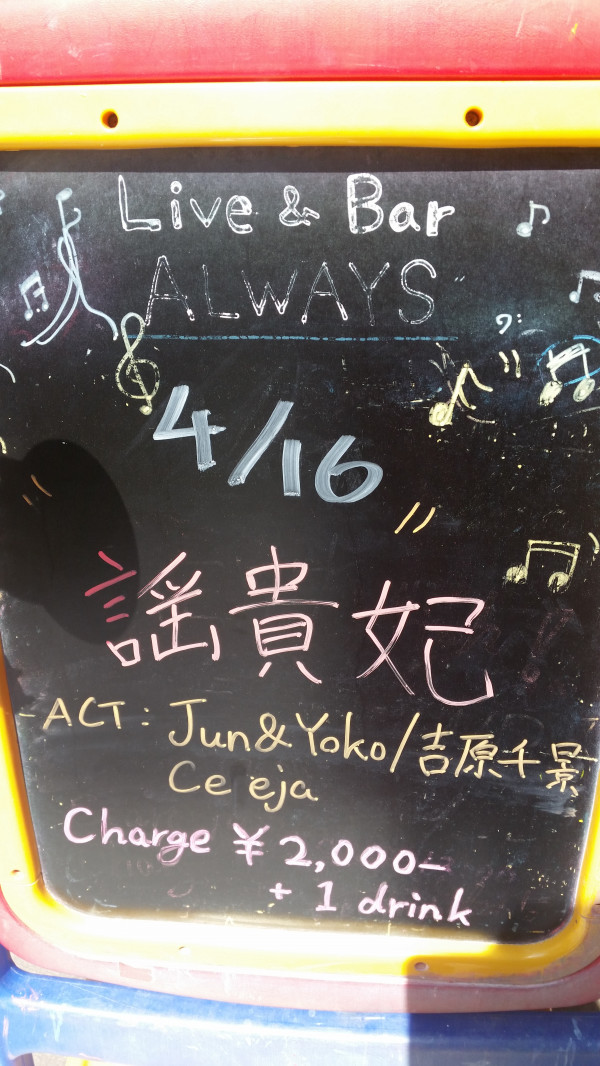 Live & Bar
ALWAYS
4/16
謡貴妃
ACT: Jun&Yoko/吉原千景
Ceeja
Charge ¥2,000-
+ 1 drink